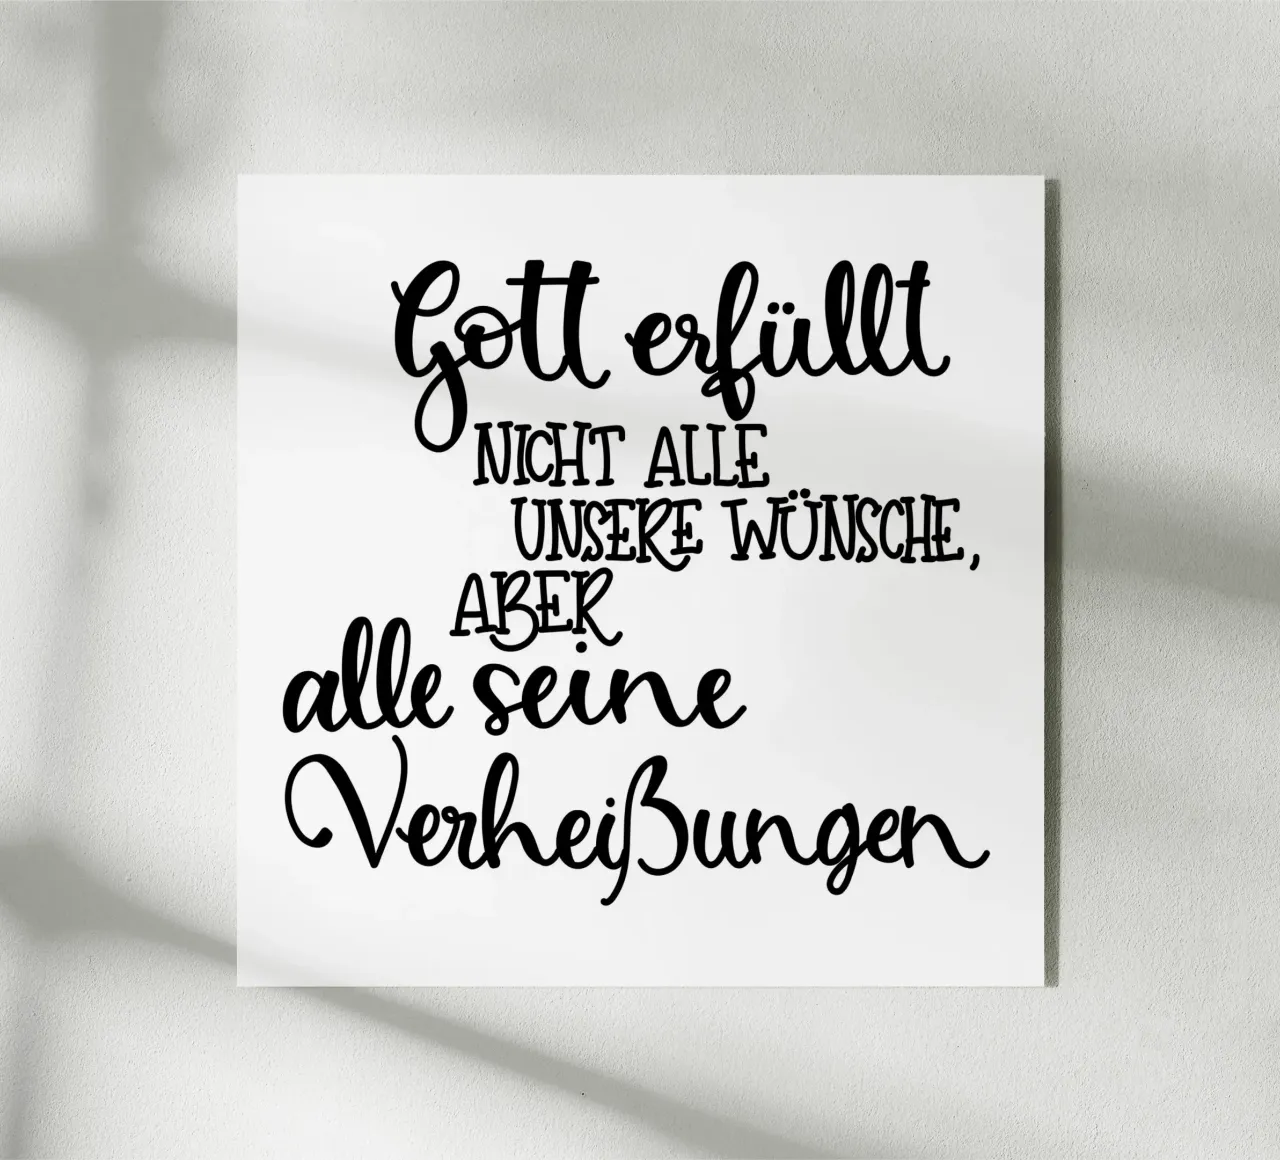 Gott erfüllt
NICHT ALLE
UNSERE WÜNSCHE,
ABER
alle seine
Verheißungen